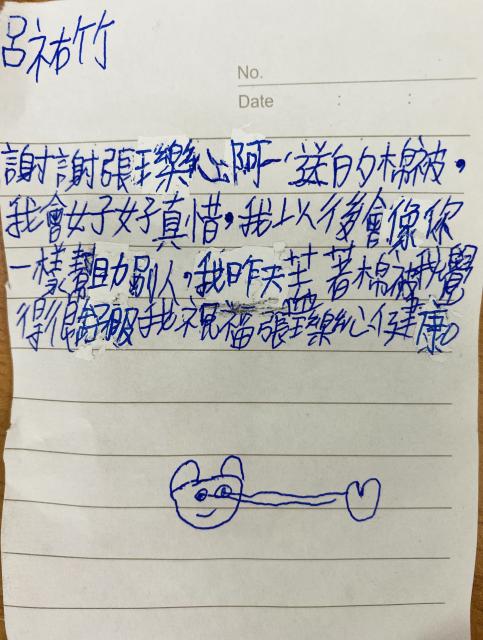 呂祐竹
No.
Date : :
謝謝張瓅心阿一送的棉被，
我會好好真惜，我以後會像你
一樣幫助別人，我昨天芏著棉被我覺
得很舒服我祝福張瓅心健康。